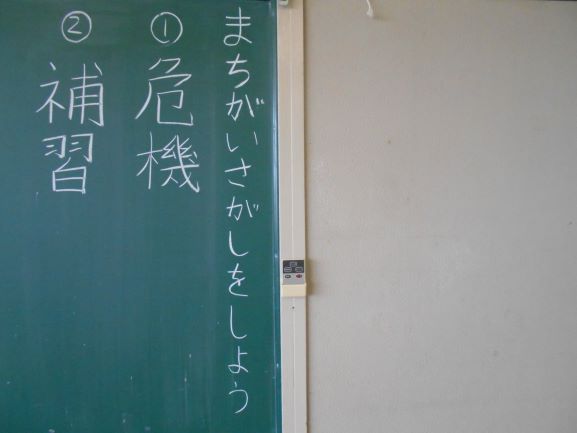 まちがいさがしをしよう
① 危機
② 補習